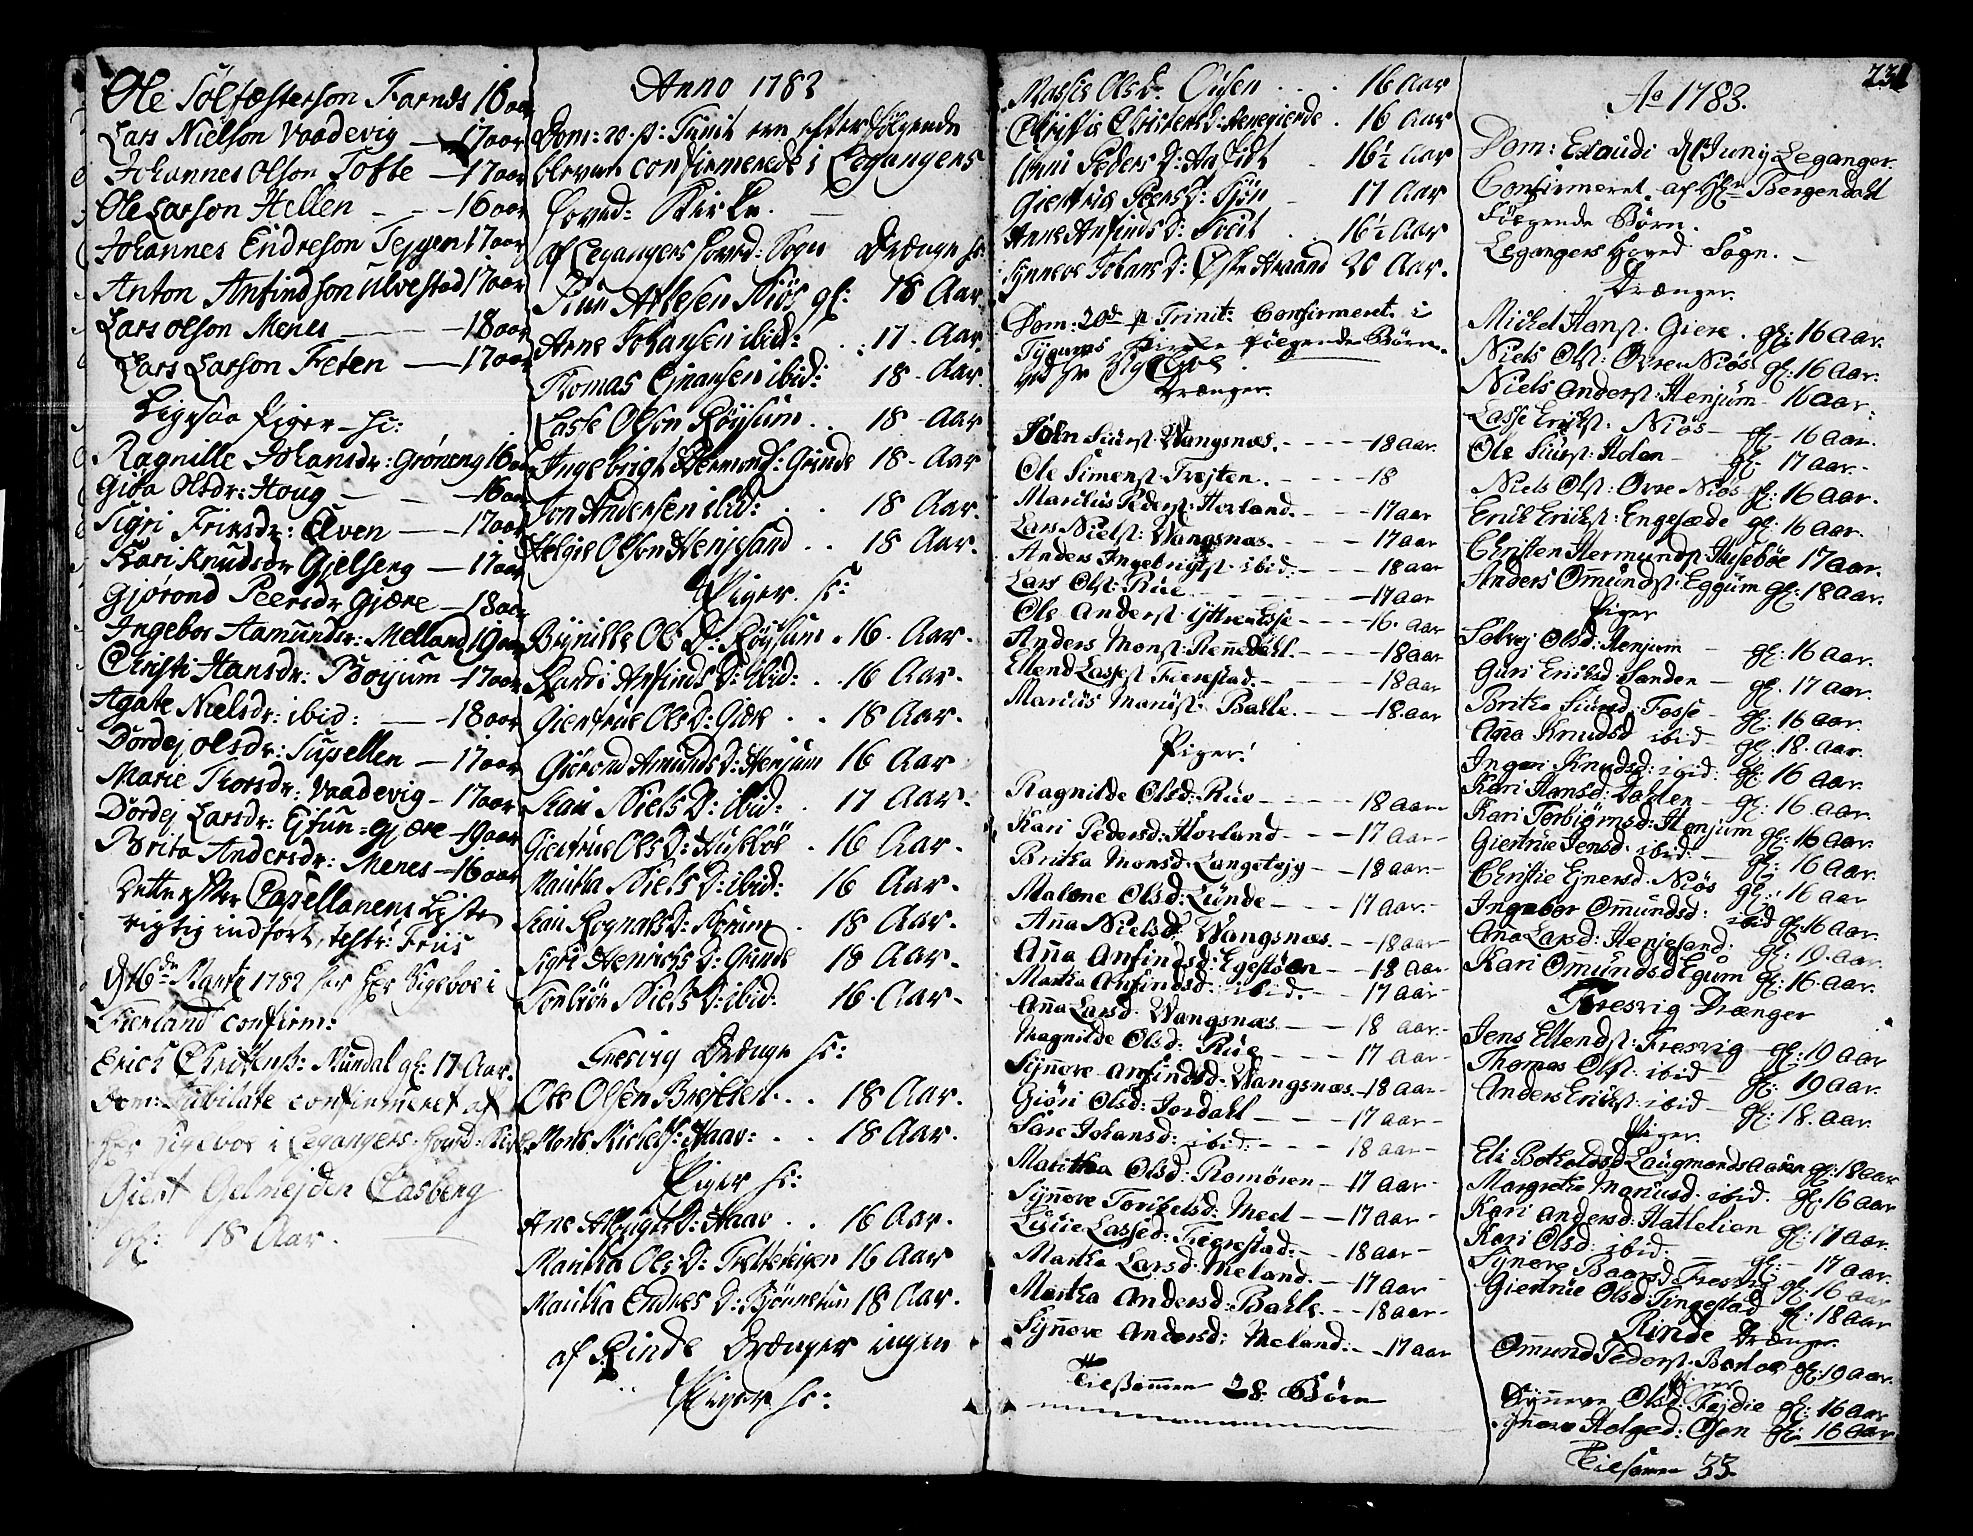 Ole Sølfæsterson Farnes 18 aar
Lars Nielson Vaadevig — 17 aar
Johannes Olson Tofte — 17 aar
Ole Larson Hellen — 16 aar
Johannes Endreson Tejgen 17 aar
Anton Anfindson Ulvestad 17 aar
Lars Olson Menes — 18 aar
Lars Larson Feten — 17 aar
Ligesaa Piger sc:
Ragnille Johansdr: Grøneng 16 aar
Gida Olsdr: Houg — 16 aar
Sigri Friksdr: Elven — 17 aar
Kari Knudsdr Gjelseng — 17 aar
Gjørond Peersdr Gjære — 18 aar
Ingebor Aamundsr: Melland 19 aar
Christi Hansdr: Bøyum — 17 aar
Agate Nielsdr: ibid: — 18 aar
Dordej Olsdr: Supellen — 17 aar
Marie Thorsdr: Vaadevig — 17 aar
Dordej Larsdr: Ejtun=gjære — 19 aar
Brita Andersdr: Menes — 16 aar
Dette efter Capellanens Liste
rigtig indført, test: Friis
d 16de Martz 1782 har Hr Sigeboe i
Fierland confirm:
Erich Christenss: Mundal gl: 17 Aar.
Dom: Jubilate confirmeret af
Hr Sigeboe i Legangers Hoved: Kirke
Giert Gelmejden Casberg
gl: 18 Aar.
Anno 1782
Dom: 20. p: Trinit ere efterfølgende
bleven confirmerede i Legangers
Hoved: Kirke.
af Legangers Hoved: Sogn Drænge sc:
Atlesen Niøs gl: 18 Aar.
Arne Johansen ibid: 17 Aar.
Thomas Ejnarsen ibid: 18 Aar.
Lasse Olson Røysum 18 Aar
Ingebrigt Hermonds: Grinde 18 Aar
Jon Andersen ibid: 18 Aar.
Helgie Olson Henjesand 18 Aar.
Piger sc:
Brynille Ols D: Røysum 16 Aar.
Anfinds D: ibid: 16 Aar.
Giertrue Ols D: Giære 18 Aar.
Giørond Amunds D: Henjum 16 Aar
Kari Niels D: ibid: 17 Aar.
Giertrue Ols D: Husebøe 16 Aar.
Maritha Niels D: ibid: 16 Aar.
Kari Rognals D: 18 Aar.
Sigri Henrichs D: Grinde 18 Aar.
Niels D: ibid: 16 Aar.
Fresvig Drænge sc:
Ole Olsen 18 Aar.
Mons Haar: 18 Aar.
Piger sc:
Ane D: Haar 16 Aar.
Maritha Ols D: 16 Aar
Maritha Endres D: Bjønnetun 18 Aar.
af Rinde Drænger ingen
Piger sc:
Olsd: Øysen 16 Aar
Christi 16 Aar
Unni Peders D: 16½ Aar
Giertrue Peers D: 17 Aar
Anne Anfinds D: 16½ Aar
Synneve Johans D: 20 Aar.
Dom: 20de p Trinit: Confirmeret i
Tjugums Kirke følgende Børn.
ved Hr Sigeboe
Drænger.
John Siurst: Wangsnæs 18 aar.
Ole Simenst: Trejten 18
Marcilius Pederst: Horland 17 aar
Lars Nielst: Wangsnæs 17 aar
Anders Ingebrigtst ibid: 18 aar
Lars Olst: Rüe 17 aar
Ole Anderst: 16 aar
Anders Monst: Rennedahl 18 aar
Ellend Lassest Fierestad 18 aar
Marcüs Manüst: Bahle 18 aar
Piger!
Ragnilde Olsd: Rüe 18 aar
Kari Pedersd: Horland 17 aar
Britha Monsd. Langetejg 18 aar
Malene Olsd: Lünde 17 aar.
Aña Nielsd: Wangsnæs 18 aar
Aña Anfindsd: Egestøen 18 aar
Martha Anfindsd: ibid. 17 aar
Aña Larsd. Wangsnæs 18 aar.
Magnilde Olsd: Rüe 17 aar
Syñere Anfindsd: Wangsnæs 18 aar.
Giøri Olsd: Jordahl 17 aar
Sare Johansd: ibid: 18 aar
Maritha Olsd: Romøren 17 aar
Syñere Torkelsd: Meel 17 aar
Lussie Lassed: Fierestad 18 aar
Martha Larsd. Meland. 17 aar
Martha Andersd: Bahle 18 aar
Syñere Andersd: Meland: 17 aar
Tilsammen 28 Børn
231
Ao 1783.
Dom: Exaudi d 1 Juny Leganger.
Confirmeret af Hr Bergendahl
Følgende Børn.
Legangers Hoved Sogn.
Drænger.
Michel Hanst: Giere gl: 16 aar.
Niels Olst: Øvre Niøs gl: 16 aar.
Niels Anderst: Henjum 16 aar:
Lasse Erichst: Niøs gl: 16 aar.
Ole Siurst: Holen gl: 17 aar.
Niels Olst: Øvre Niøs gl: 16 aar.
Erich Erichst: Engesæde gl: 16 aar.
Christen Hermundst: Husebøe 17 aar.
Anders Omundst: Eggum gl: 18 aar.
Piger
Sølvej Olsd: Henjum gl: 16 aar.
Guri Erichsd Sanden gl. 17 aar.
Britha Siursd: Fosse gl: 16 aar
Aña Knudsd ibid gl: 18. aar.
Inger Knudsd: ibid: gl: 16 aar
Kari Hansd: gl: 16 aar.
Kari Torbiørnsd: Henjum gl: 16 aar.
Giertrüe Jensd. ibid: gl: 16 aar.
Christie Ejnersd. Niøs gl: 16 aar
Ingebor Omundsd: ibid gl: 16 aar.
Aña Larsd: Henjesand: gl: 19 aar.
Kari Omundsd Egum gl: 16 aar.
Fresvig Drænger
Jens Ellendst: Fresvig gl: 19 aar
Thomas Olst: ibid gl: 19 aar.
Anders Erichst: ibid gl: 18. aar.
Piger.
Eli Botholdsd Laugmandsaasen gl: 18 aar
Margrethe Mariusd. ibid. gl: 16 aar
Kari Andersd: Hattelien gl: 17 aar.
Kari Olsd: ibid. gl: 17 aar.
Synere Baarsd: Fresvig gl: 16 aar
Giertrüe Olsd: Tingestad gl: 18 aar
Rinde Drænger.
Omund Pederst. gl: 19 aar.
Piger
Syñere Olsd: Fejdie gl: 16 aar
Syñere Helged: Osen gl: 16 aar
Tilsamen 33.